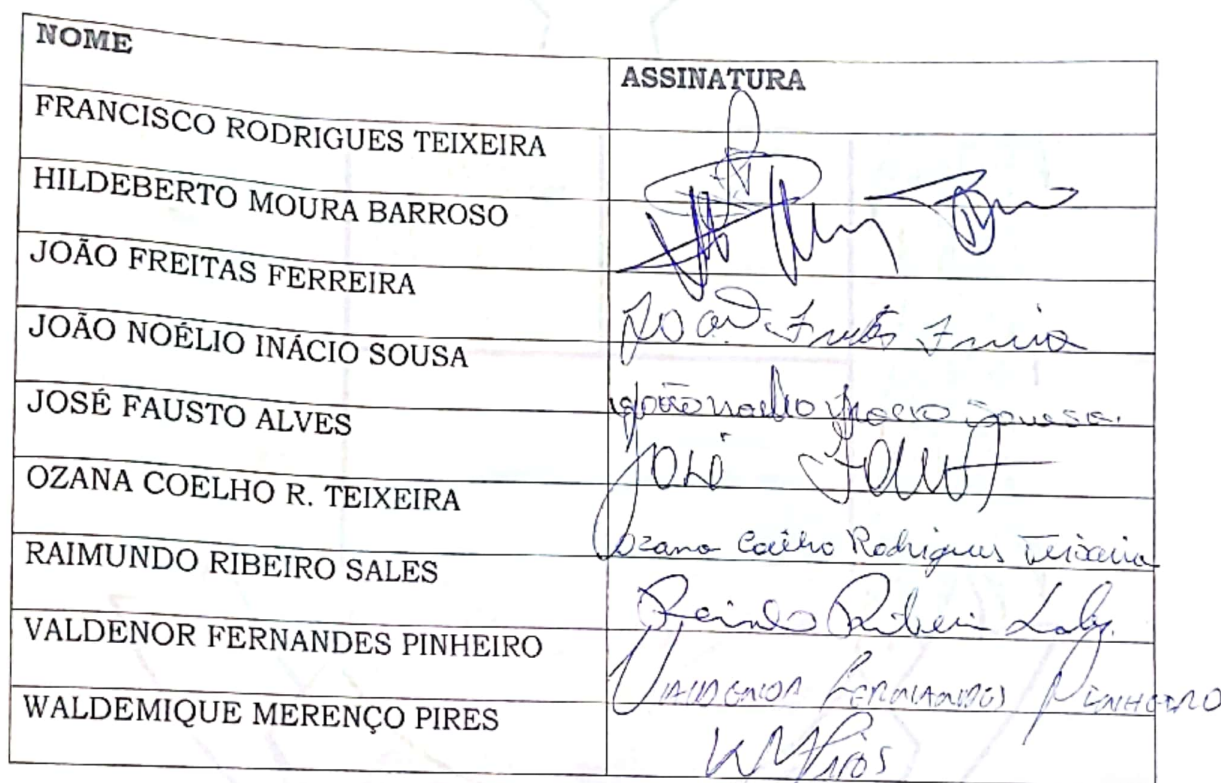 NOME ASSINATURA
FRANCISCO RODRIGUES TEIXEIRA
HILDEBERTO MOURA BARROSO
JOÃO FREITAS FERREIRA João Freitas
JOÃO NOÉLIO INÁCIO SOUSA
JOSÉ FAUSTO ALVES José
OZANA COELHO R. TEIXEIRA Ozana Coêlho Rodrigues Teixeira
RAIMUNDO RIBEIRO SALES Ribeiro
VALDENOR FERNANDES PINHEIRO VALDENOR FERNANDES PINHEIRO
WALDEMIQUE MERENÇO PIRES WMPires